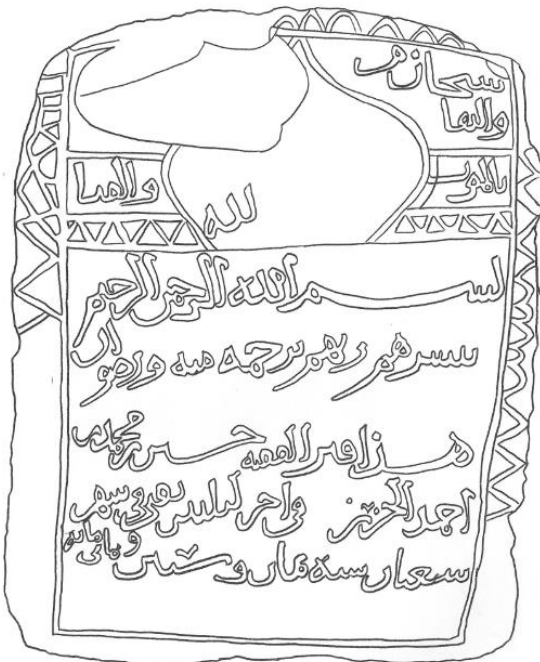 سبحان من
والبقا
بالموت والفنا
لله
بسم الله الرحمن الرحيم
يبشرهم ربهم برحمة منه ورضوان
هذا قبر الفقيه حسن بن محمد بن
احمد في اخر شهر
شعبان سنة ثمان وستين وثماني مائة